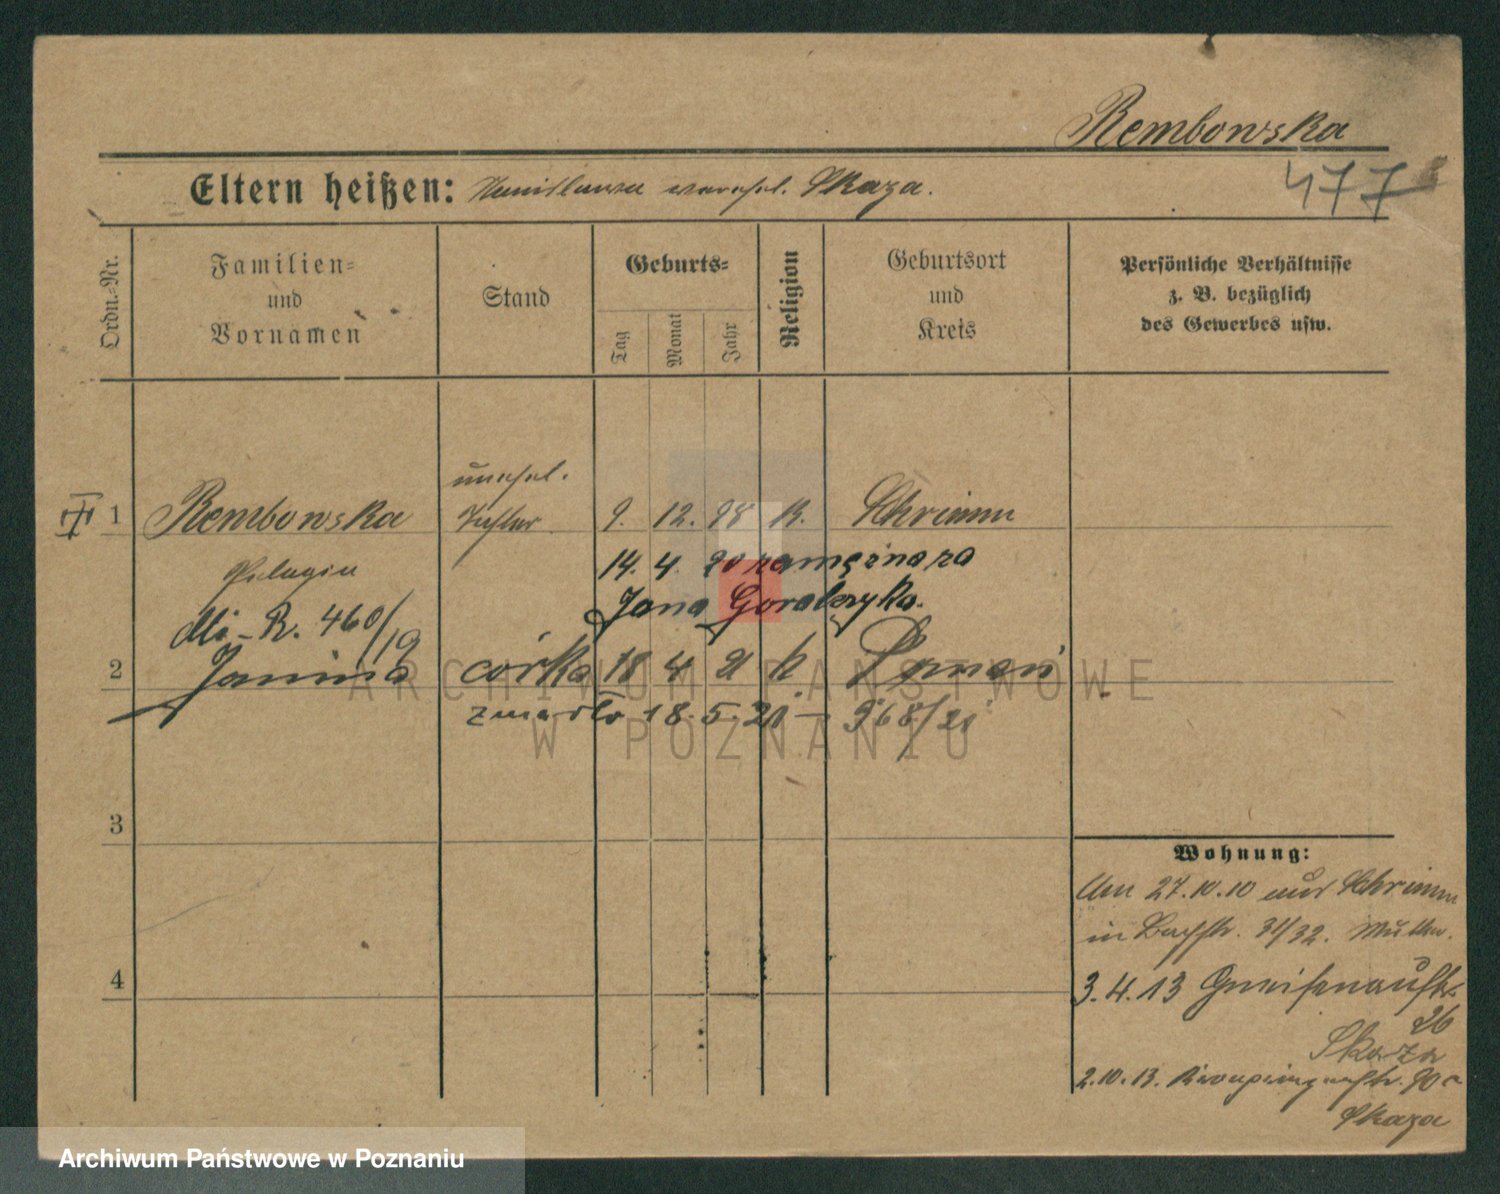 Rembowska
477
Eltern heißen: Stanislawa verehel. Skaza.
Ordn.-Nr.
Familien-
und
Vornamen
Stand
Geburts-
Tag
Monat
Jahr
Religion
Geburtsort
und
Kreis
Persönliche Verhältnisse
z. B. bezüglich
des Gewerbes usw.
unehel.
1 Rembowska Tochter 9. 12. 98 K. Schrimm
Pelagia
14. 4. 20 zamęzna za
Jana Goralczyka.
R. 460/19
2 Janina córka 18 4 21 k Poznań
zmarła 18. 5. 21 - 968/21
3
4
Wohnung:
Am 27.10.10 aus Schrimm
in Bachstr. 31/32. Mutter.
3.4.13 Gneisenaustr.
26
Skaza
2.10.13. Kronprinzenstr. 90a
Skaza
ARCHIWUM PAŃSTWOWE
W POZNANIU
Archiwum Państwowe w Poznaniu